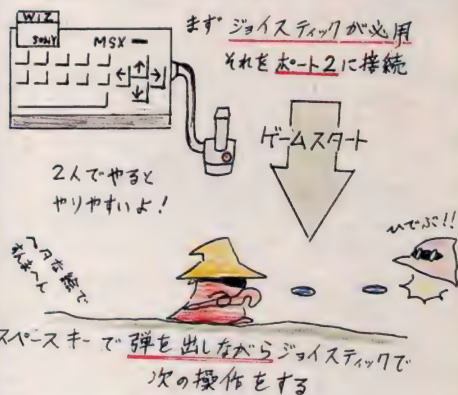 WIZ
SONY
MSX
まず ジョイスティックが必用
それをポート2に接続
ゲームスタート
2人でやると
やりやすいよ!
ヘタな絵で
すんまへん
ひでぶ!!
スペースキーで弾を出しながらジョイスティックで
次の操作をする